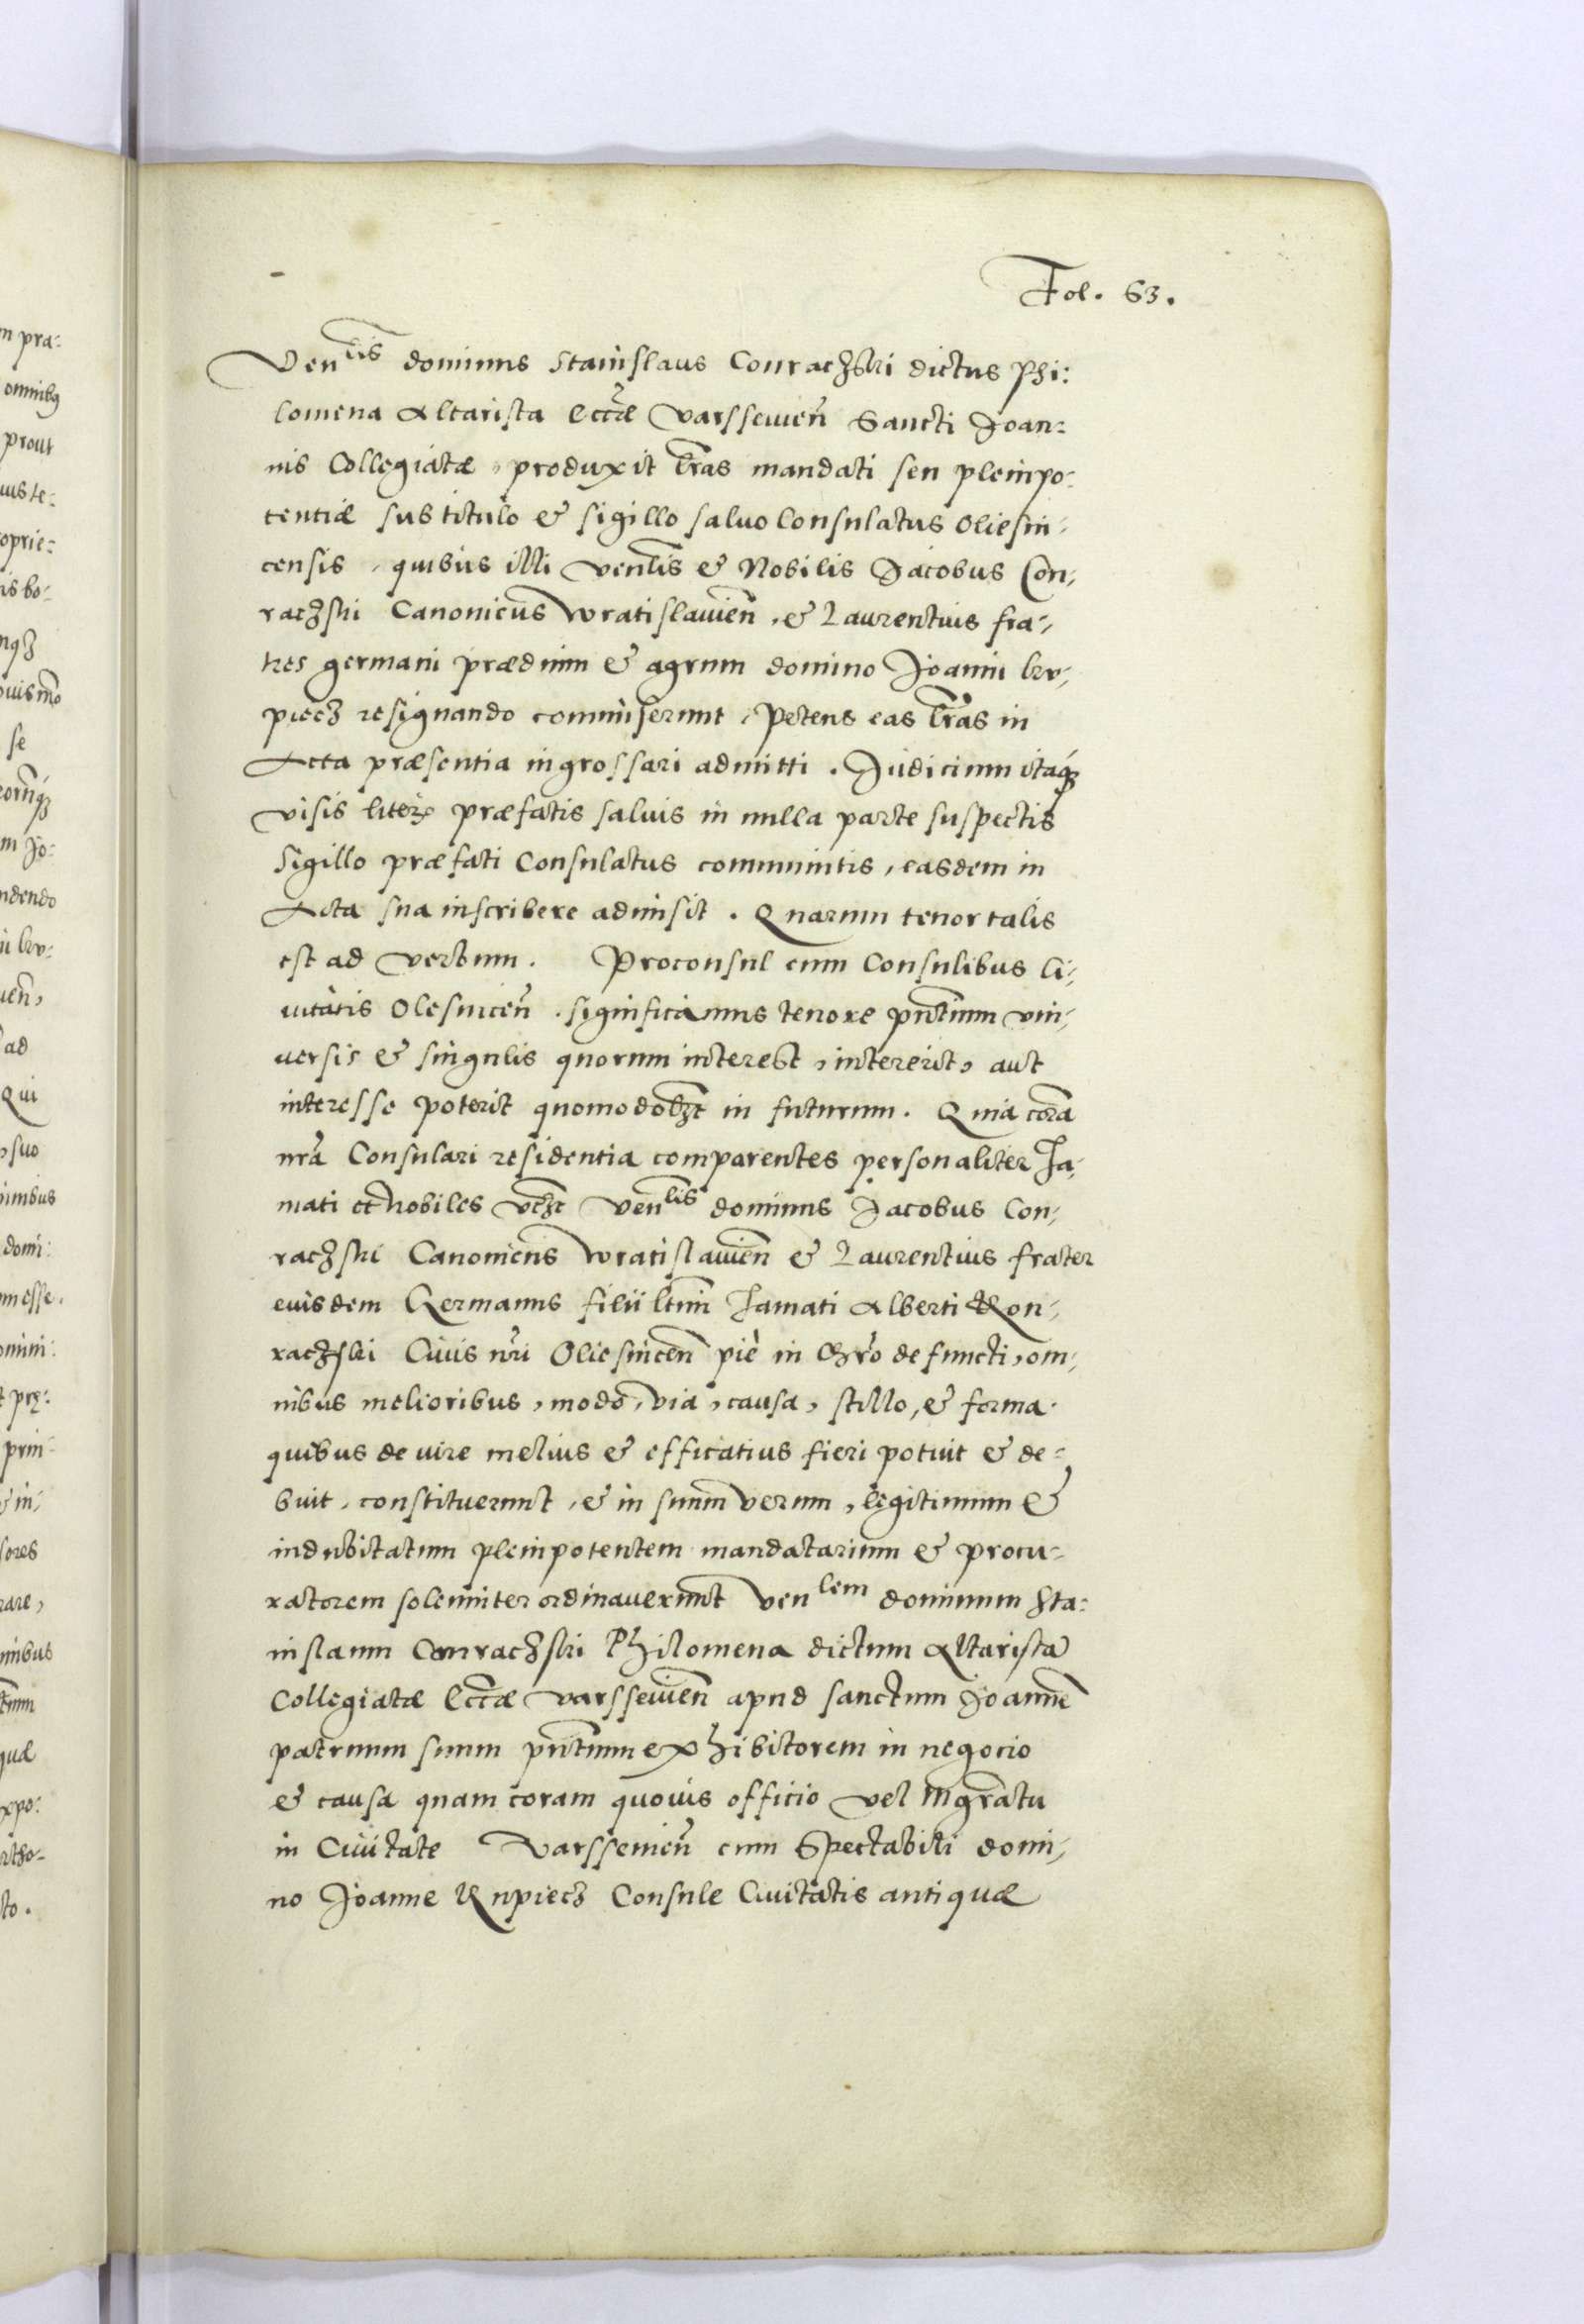 Fol. 63.
Ven^lis dominus Stanislaus Conraczski dictus Phi:
lomena Altarista Eccłae Varsseuien̄ Sancti Joan:
nis Collegiatae, produxit l̄ras mandati seu plenipo:
tentiae sub titulo & sigillo saluo Consulatus Oliesni:
censis, quibus illi venłlis & Nobilis Jacobus Con:
raczski Canonicus Wratislauien̄, & Laurentius fra:
tres germani praedium & agrum domino Joanni kru:
piecz resignando commiserunt, Petens eas l̄ras in
Acta praesentia ingrossari admitti. Judicium itaq́ꝫ
visis literꝭ praefatis saluis in nulla parte suspectis
sigillo praefati Consulatus communitis, easdem in
Acta sua inscribere admisit. Quarum tenor talis
est ad verbum. Proconsul cum Consulibus Ci:
uitatis Olesnicen̄. significamus tenore pn̄tium vni:
uersis & singulis quorum interest, intererit, aut
interesse poterit quomodolꝫt in futurum. Quia cora̅
nr̄a Consulari residentia comparentes personaliter Fa:
mati et Nobiles vꝫt Ven^lis dominus Jacobus Con:
raczski Canonicus Wratislauien̄ & Laurentius frater
euisdem Germanus filii l̄tim Famati Alberti Kon:
raczski Ciuis nr̄i Oliesnicen̄ piè in Chr̄o defuncti, om:
nibus melioribus, modo, via, causa, stillo, & forma.
quibus de iure melius & efficatius fieri potuit & de:
buit, constituerunt, & in suum verum, legitimum &
indubitatum plenipotentem mandatarium & procu:
ratorem solenniter ordinauerunt Ven^lem dominum Sta:
nislaum Conraczski Philomena dictum Altarista̅
Collegiatae Eccłae Varsseuien̄ apud sanctum Joanne̅
patruum suum pn̄tium exhibitorem in negocio
& causa quam coram quouis officio vel Mgr̄atu
in Ciuitate Varsseuien̄ cum Spectabili domi:
no Joanne Krupiecz Consule Ciuitatis antiquae